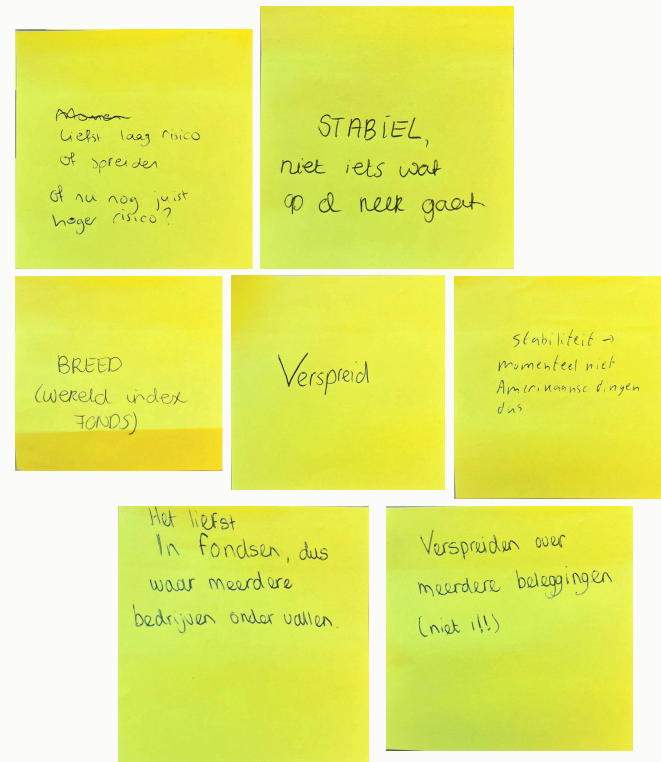 Liefst laag risico
of spreiden
of nu nog juist
hoger risico?
STABIEL,
niet iets wat
op d nek gaat
BREED
(wereld index
FONDS)
Verspreid
Stabiliteit →
momenteel niet
Amerikaanse dingen
dus
Het liefst
In fondsen, dus
waar meerdere
bedrijven onder vallen.
Verspreiden over
meerdere beleggingen
(niet 1!!)